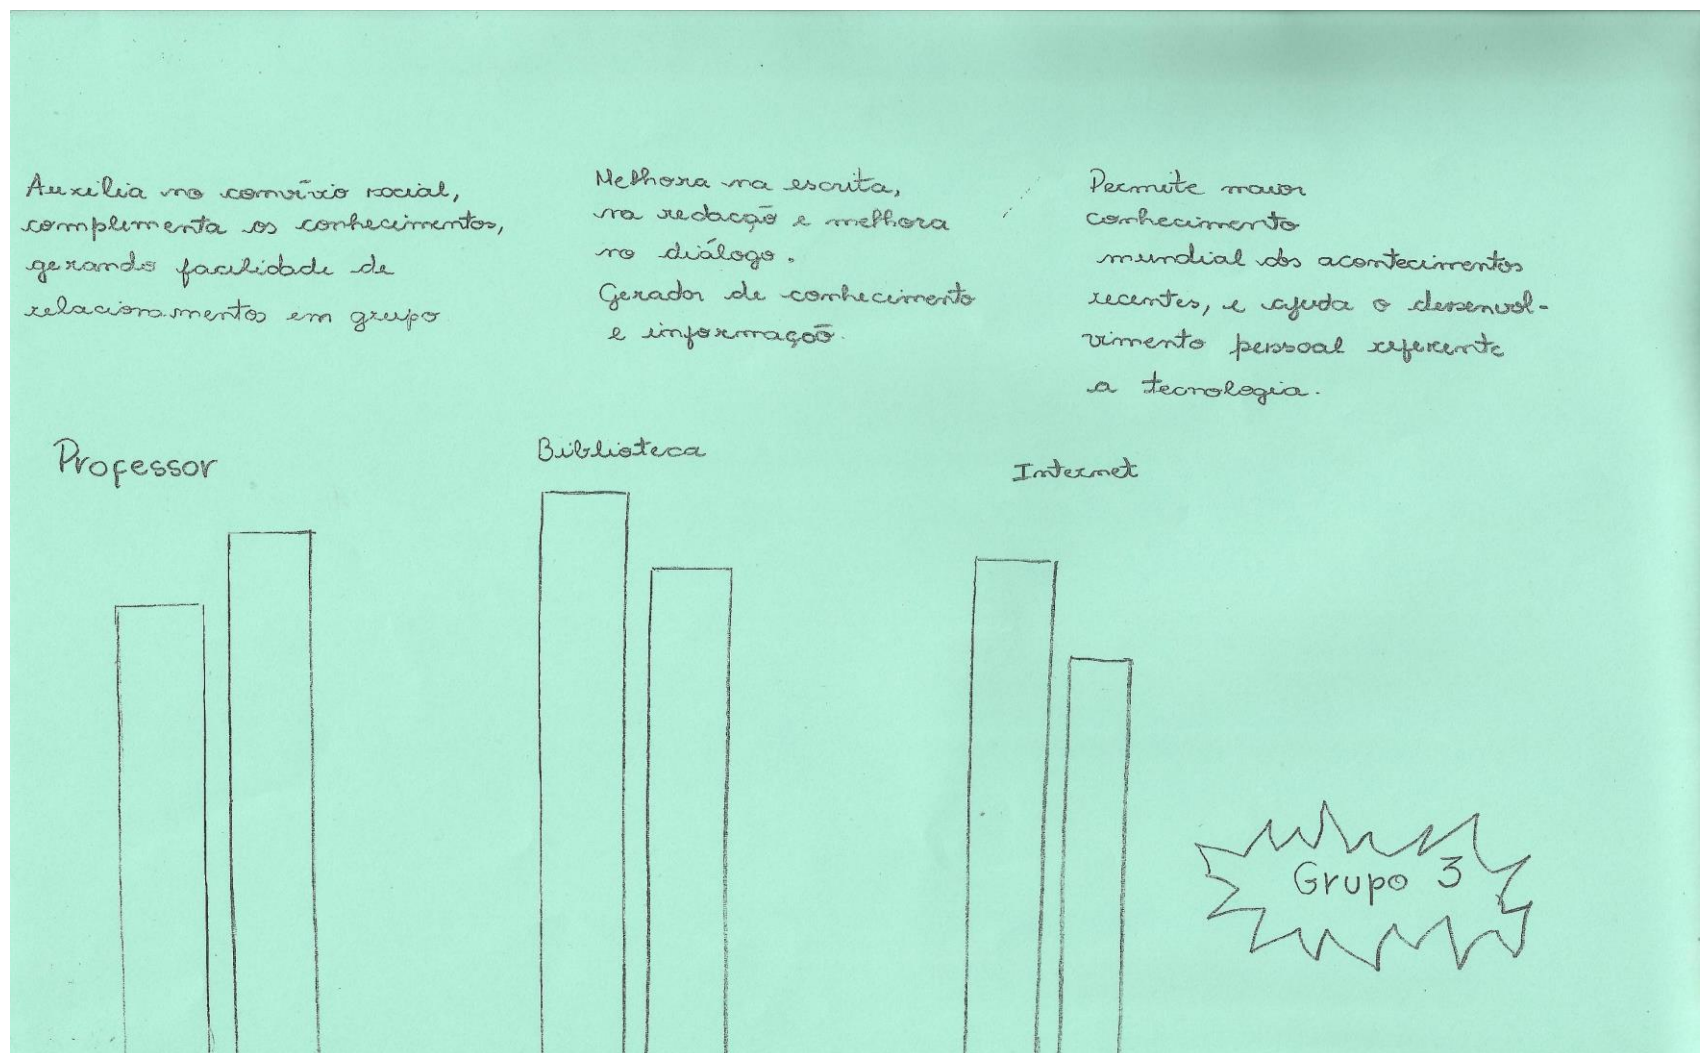 Auxilia no convívio social,
complementa os conhecimentos,
gerando facilidade de
relacionamentos em grupo
Melhora na escrita,
na redação e melhora
no diálogo.
Gerador de conhecimento
e informação.
Permite maior
conhecimento
mundial dos acontecimentos
recentes, e ajuda o desenvol-
vimento pessoal referente
a tecnologia.
Professor
Biblioteca
Internet
Grupo 3